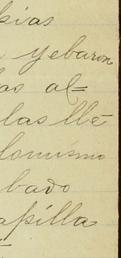 pias
yebaron
las al=
las llē
lomismo
bado
apilla